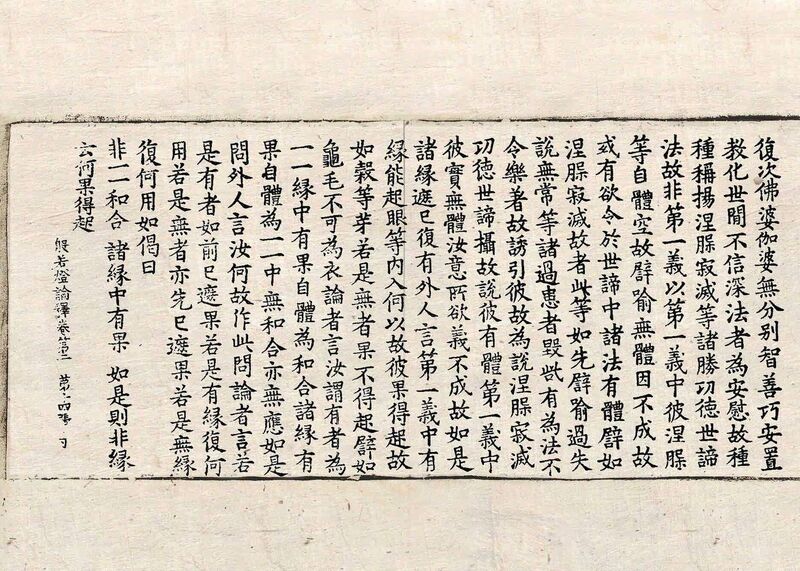 復次佛婆伽婆無分別智善巧安置
教化世間不信深法者為安慰故種
種稱揚涅槃寂滅等諸勝功德世諦
法故非第一義以第一義中彼涅槃
等自體空故譬喻無體因不成故
或有欲令於世諦中諸法有體譬如
涅槃寂滅故者此等如先譬喻過失
說無常等諸過患者毀呰有為法不
令樂著故誘引彼故為說涅槃寂滅
功德世諦攝故說彼有體第一義中
彼實無體汝意所欲義不成故如是
諸緣遮已復有外人言第一義中有
緣能起眼等內入何以故彼果得起故
如穀等芽若是無者果不得起譬如
龜毛不可為衣論者言汝謂有者為
一一緣中有果自體為和合諸緣有
果自體為一一中無和合亦無應如是
問外人言汝何故作此問論者言若
是有者如前已遮果若是有緣復何
用若是無者亦先已遮果若是無緣
復何用如偈曰
非一一和合 諸緣中有果 如是則非緣
云何果得起
般若燈論釋卷第二